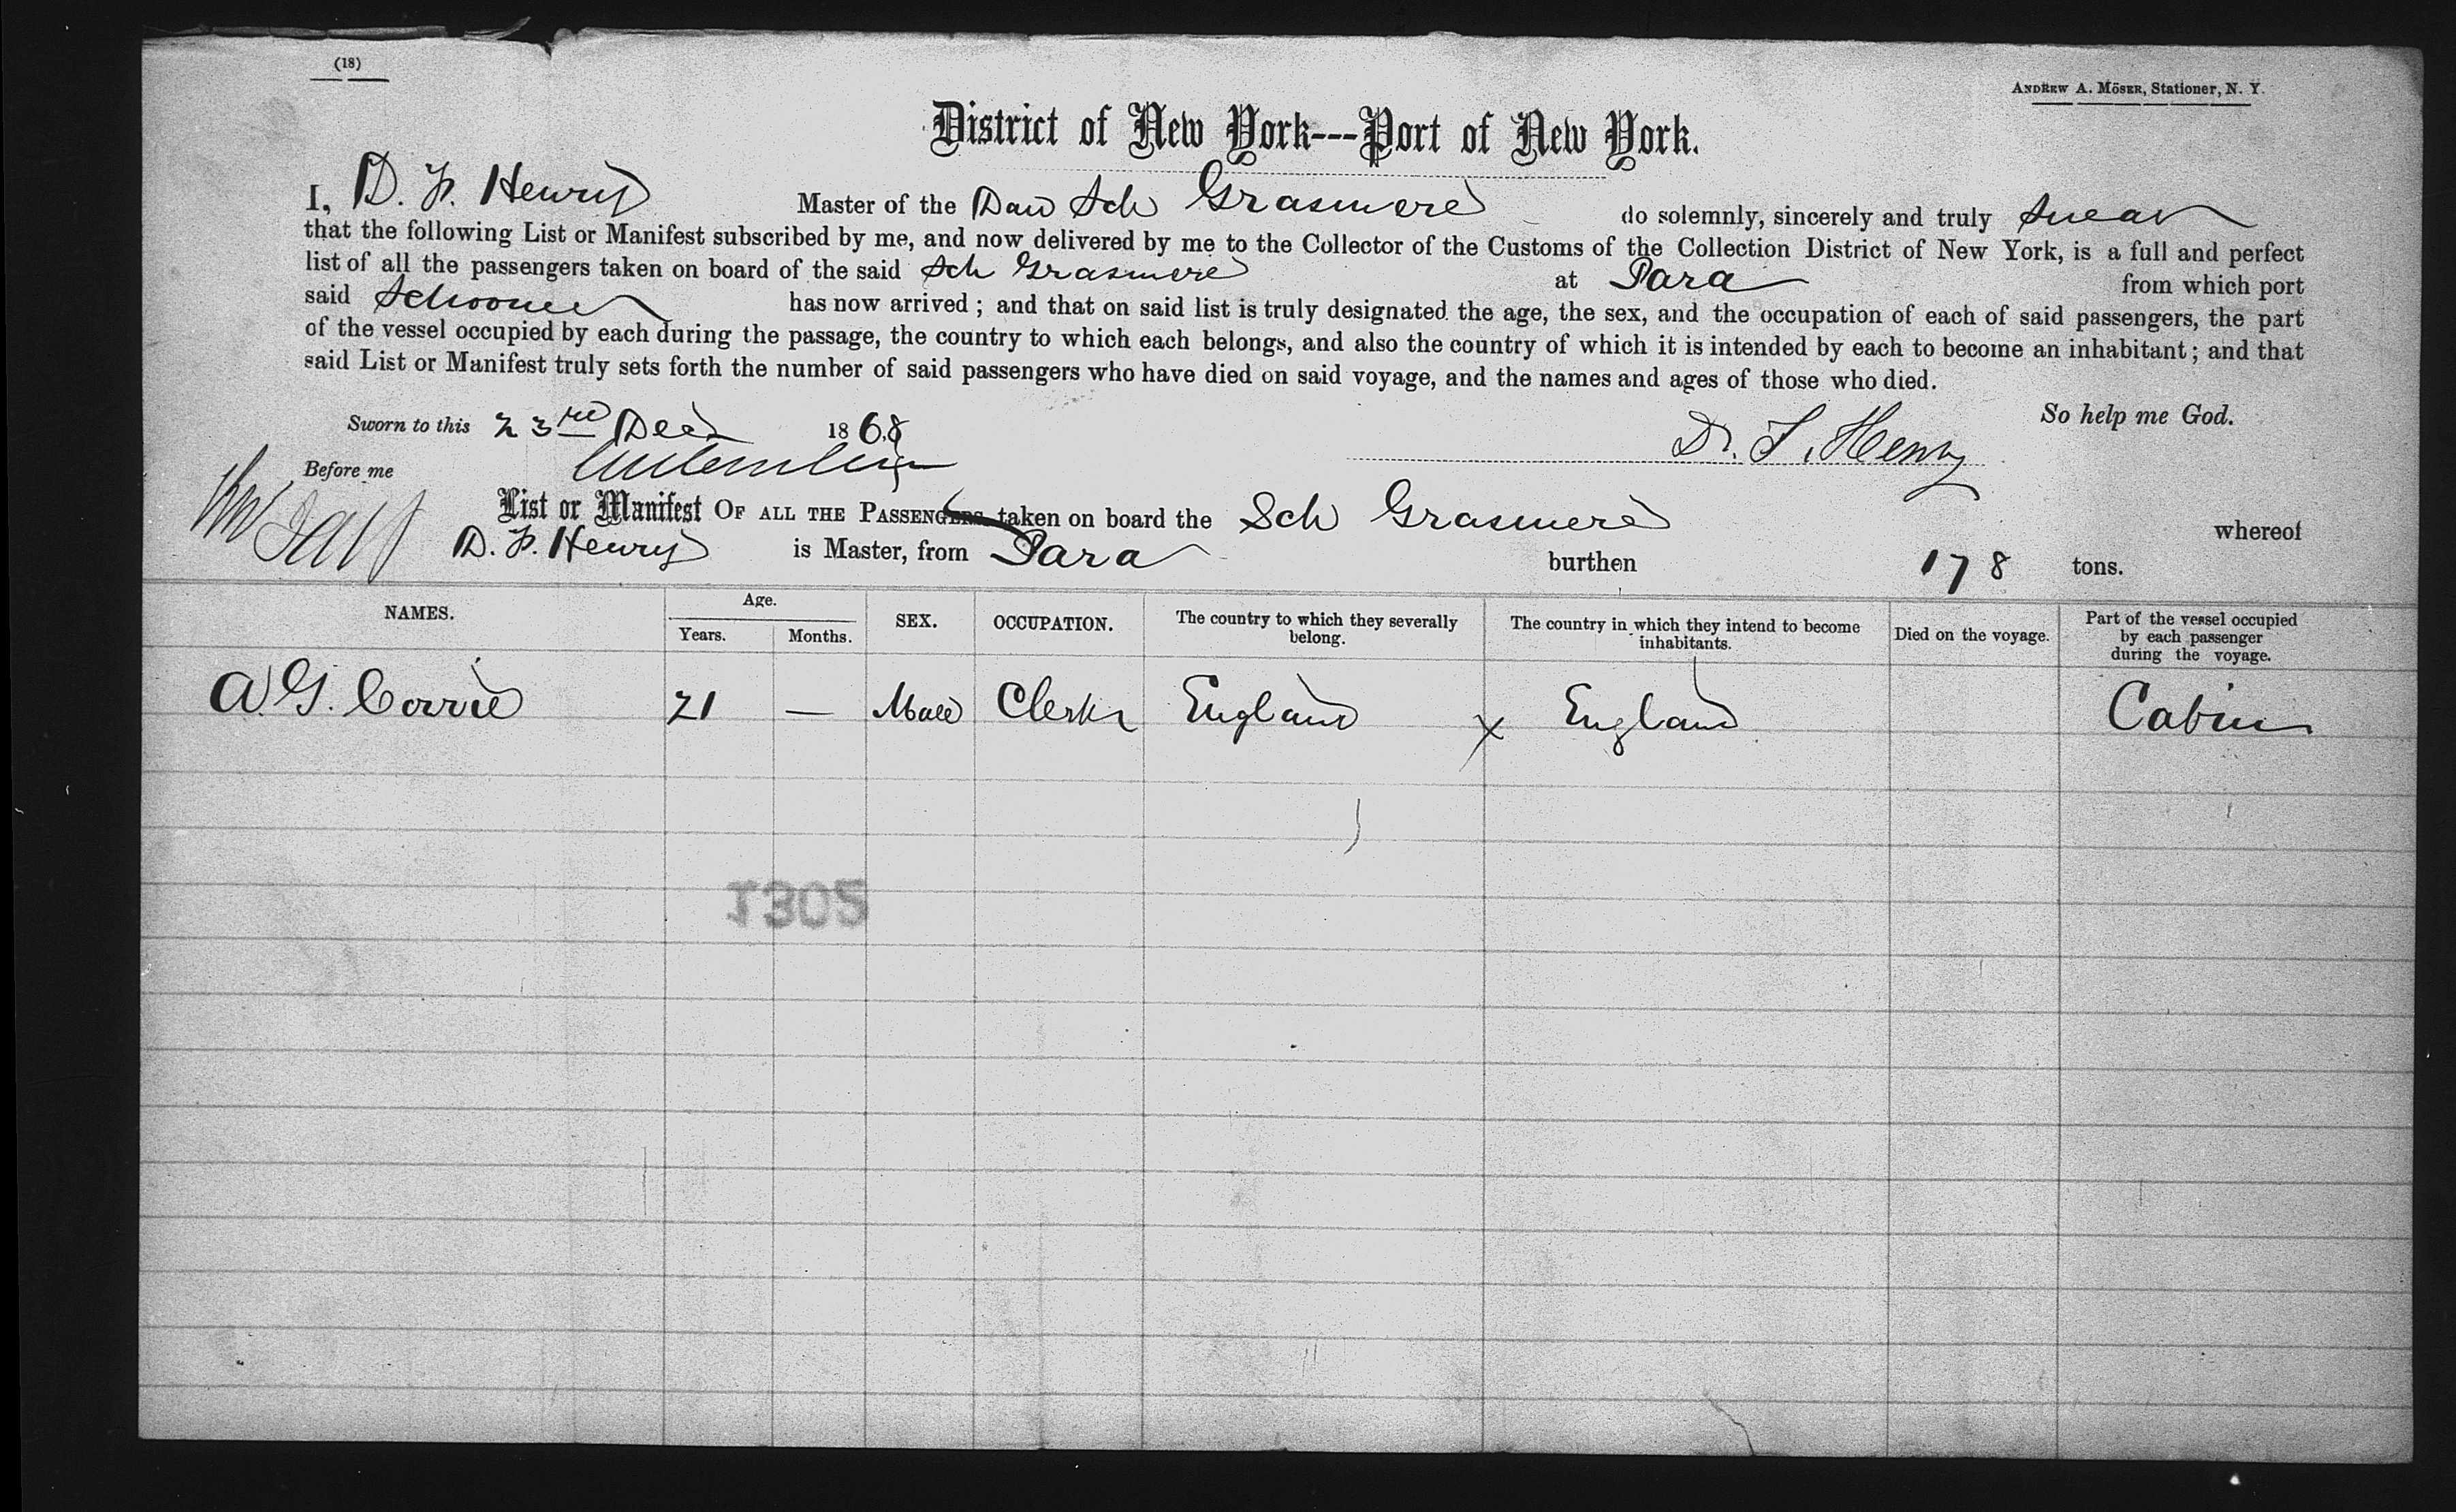 (18)
ANDREW A. MÖSER, Stationer, N. Y.
District of New York---Port of New York.
I, D. F. Henry Master of the Dan Sch Grasmere do solemnly, sincerely and truly swear
that the following List or Manifest subscribed by me, and now delivered by me to the Collector of the Customs of the Collection District of New York, is a full and perfect
list of all the passengers taken on board of the said Sch Grasmere at Para from which port
said Schooner has now arrived; and that on said list is truly designated the age, the sex, and the occupation of each of said passengers, the part
of the vessel occupied by each during the passage, the country to which each belongs, and also the country of which it is intended by each to become an inhabitant; and that
said List or Manifest truly sets forth the number of said passengers who have died on said voyage, and the names and ages of those who died.
So help me God.
Sworn to this 23rd Dec 1868
D. F. Henry
Before me
List or Manifest OF ALL THE PASSENGERS taken on board the Sch Grasmere whereof
D. F. Henry is Master, from Para burthen 178 tons.
NAMES. Age. Years. Months. SEX. OCCUPATION. The country to which they severally belong. The country in which they intend to become inhabitants. Died on the voyage. Part of the vessel occupied by each passenger during the voyage.
A. G. Corrie 21 — Male Clerk England x England Cabin
1305